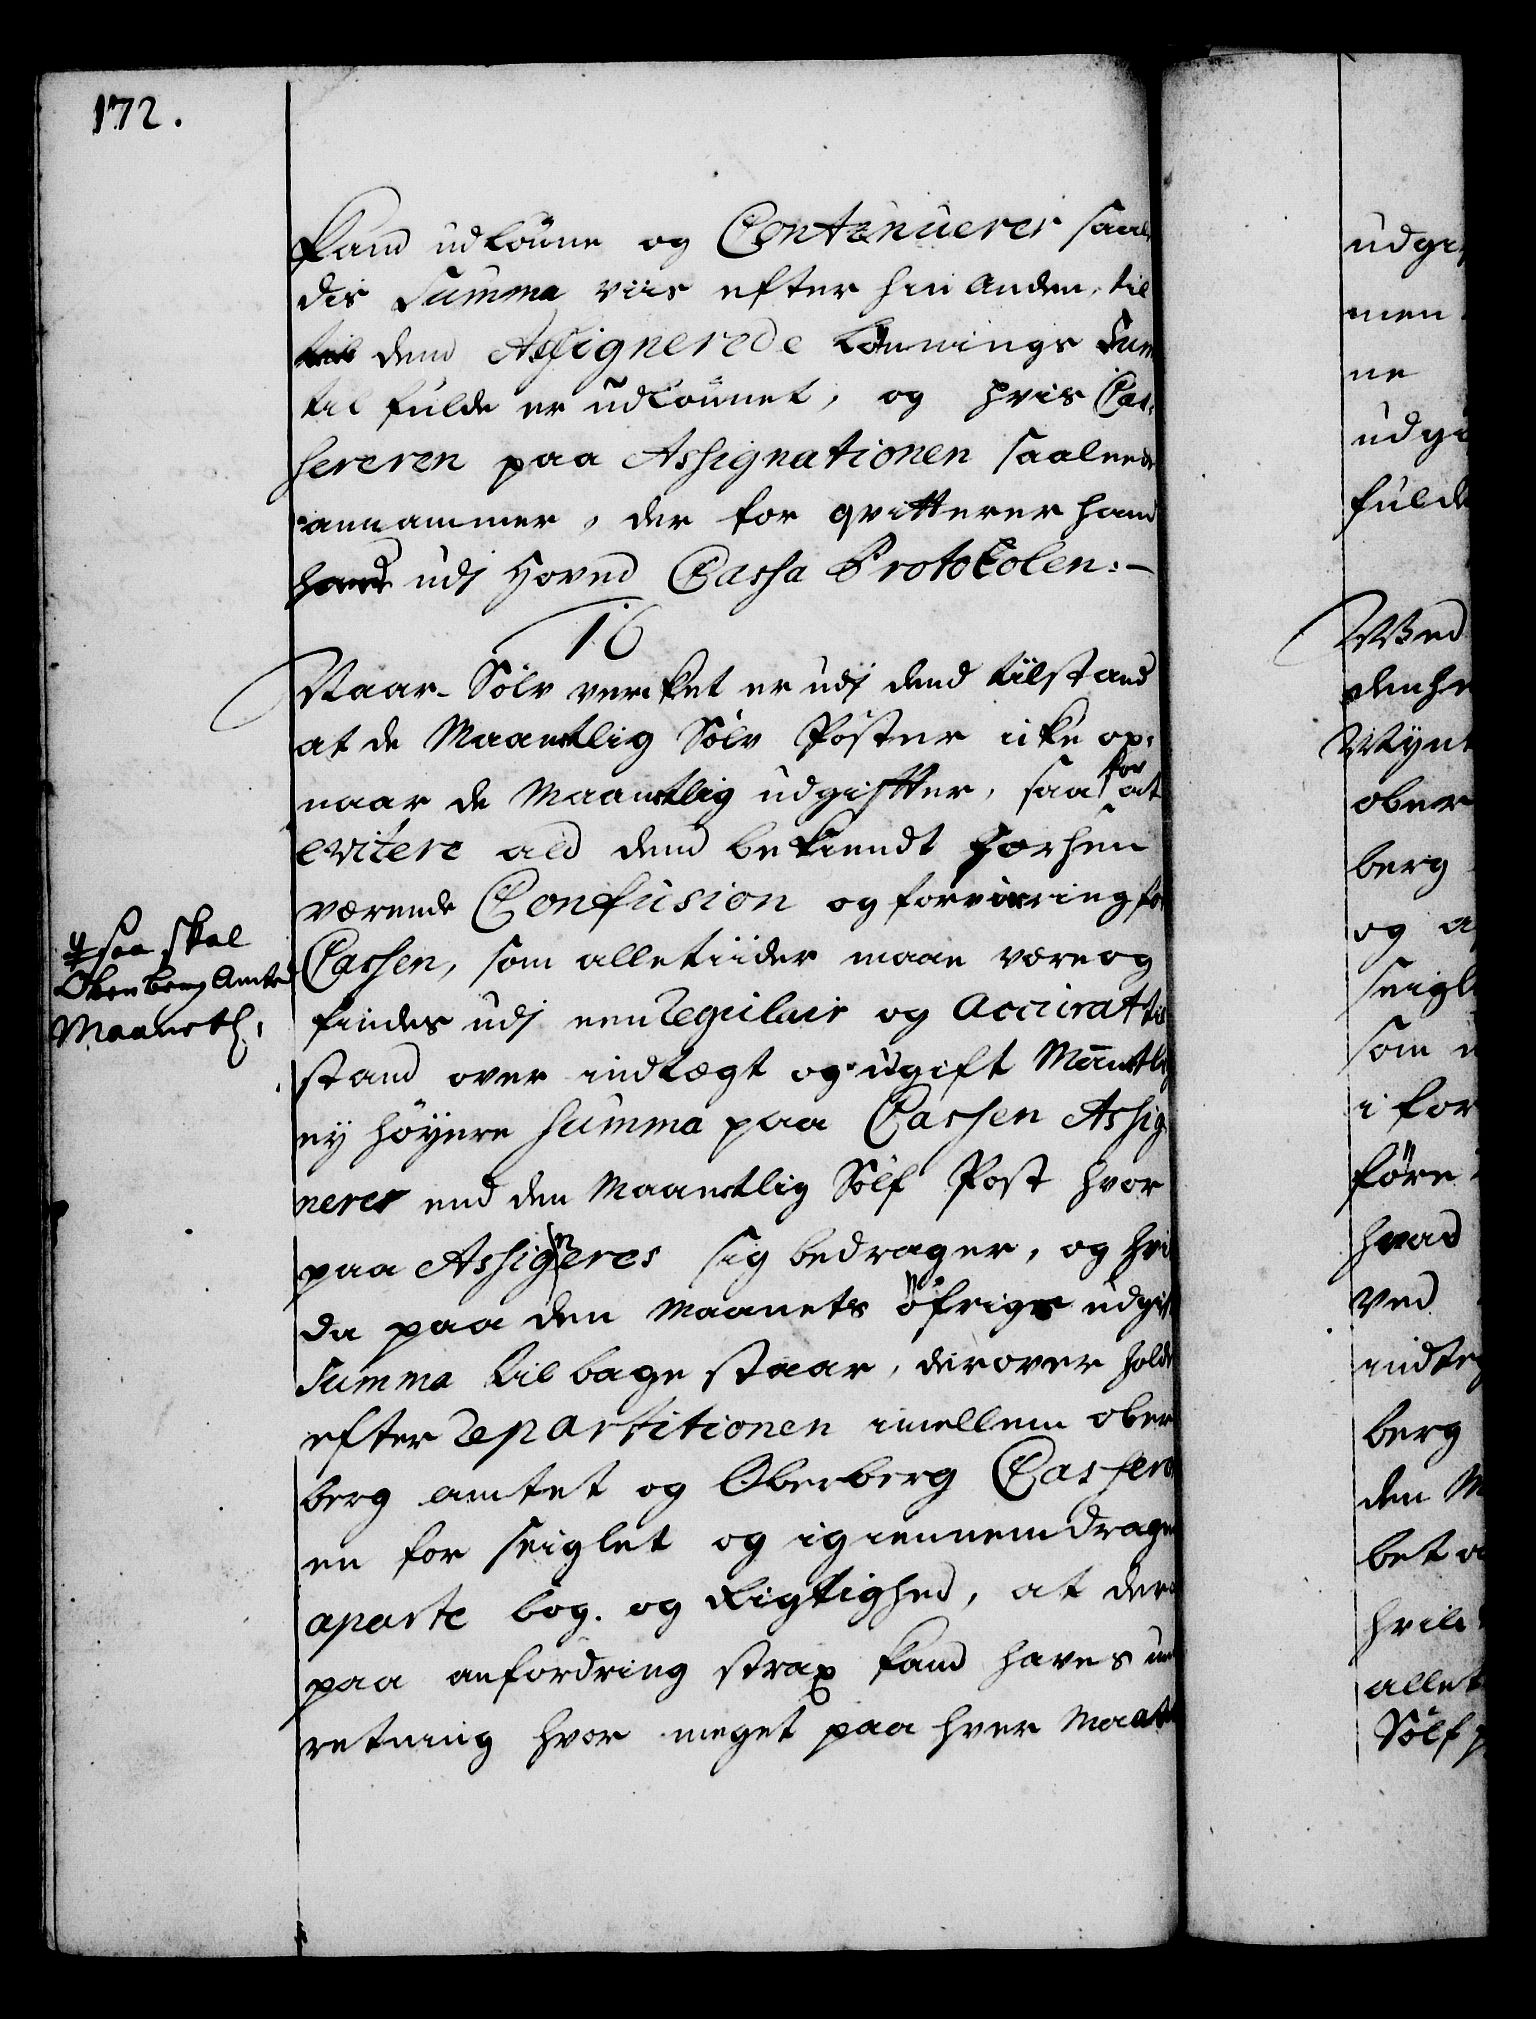 172.
kand udlönne og Continuerer saale
dis Summa viis efter hin anden, til
till dend Assignerede lönnings Sum
til fulde er udlönnet, og hvis Cas,
sereren paa Assignationen saaleedes
annammer, der for qvitterer hand
hand udj Hoved Cassa Protokolen:-
16
Naar Sölv verket er udj dend tilstand
at de Maanetlig Sölv Poster icke op,
naar de Maanetlig udgiffter, saa for at
evitere ald dend bekiendt forhen
værende Confusion og forvirring for
Cassen, som alletiider maae være og
findes udj een Regulair og Accurat til
stand over indtegt og udgift Maanetlig
ej höyere Summa paa Cassen Assig
neres end den Maanetlig Sölf Post hvor
paa Assigneres sig bedrager, og hvis
da paa den Maanets öfrige udgift
Summa tilbage staar, derover holdes
efter Repartitionen imellem ober
berg amtet og Oberberg Casserer
en for seiglet og igiennemdragen
aparte bog. og Rigtighed, at der
paa anfordring strax kand haves un
retning hvor meget paa hver Maanet
# saa skal
Oberberg Amtet
Maanetl:
udgif
men
ne
udgi
fulde
Wed
denhe
Mynt
ober
berg
og a
seigl
som u
i for
före
hvad
ved
indteg
berg
den M
bet
hvil
allet
Sölf p